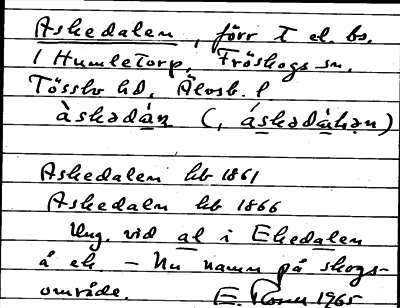 Askedalen, förr t el. bs.
i Humletorp, Fröskogs sn,
Tössbo hd, Älvsb. l.
àskədàn (, áskədàhən)
Askedalen hb 1861
Askedaln hb 1866
Ung. vid al i Ekedalen
å ek. – Nu namn på skogs-
område. E. 1965